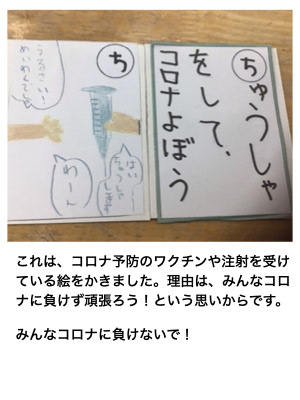 ち
ちゅうしゃ
をして、
コロナよぼう
うるさい!
めいわくでしょ
はい
ちゅうしゃ
します
わーん
これは、コロナ予防のワクチンや注射を受け
ている絵をかきました。理由は、みんなコロ
ナに負けず頑張ろう!という思いからです。
みんなコロナに負けないで!